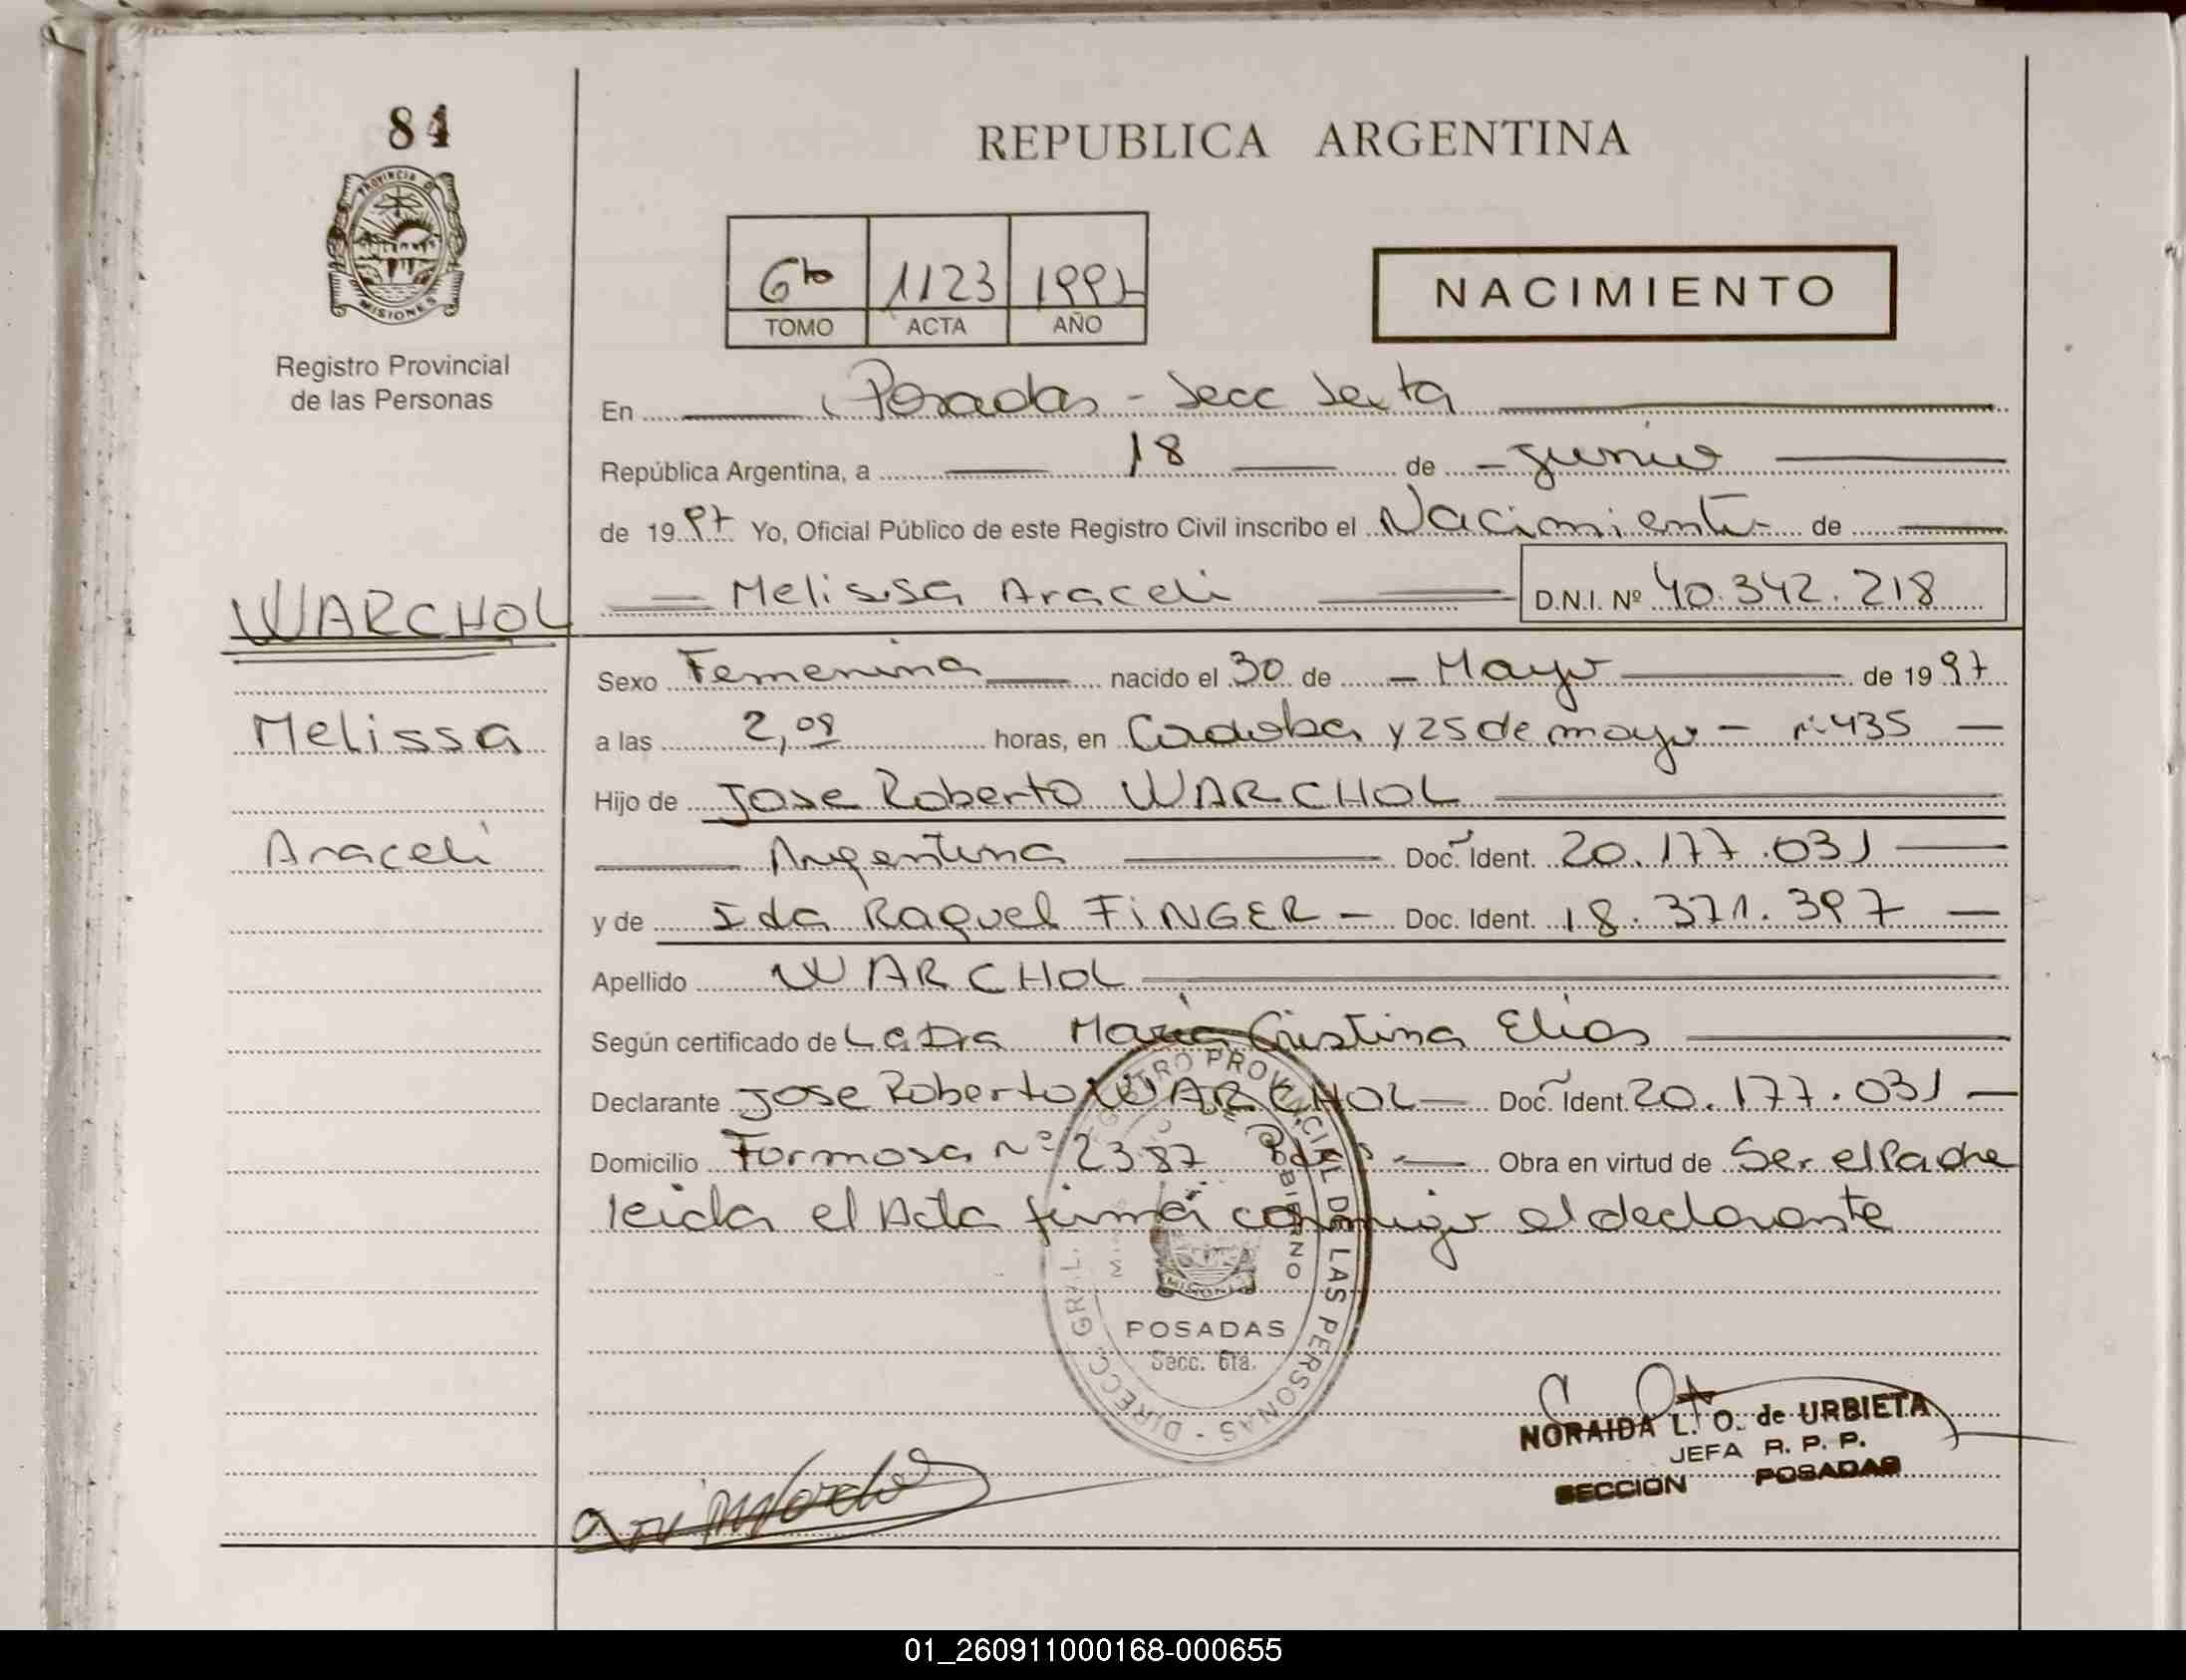 84
REPUBLICA ARGENTINA
PROVINCIA DE
MISIONES
Registro Provincial
de las Personas
6to 1123 1997
TOMO ACTA AÑO
NACIMIENTO
En Posadas - Secc Sexta
República Argentina, a 18 de - Junio
de 1997 Yo, Oficial Público de este Registro Civil inscribo el Nacimiento de
Melissa Araceli D.N.I. Nº 40.342.218
WARCHOL
Sexo Femenina nacido el 30 de - Mayo de 1997
Melissa
a las 2,08 horas, en Cordoba y 25 de mayo - nº 435 -
Hijo de Jose Roberto WARCHOL
Araceli
Argentina Doc. Ident. 20.177.031
y de Ida Raquel FiNGER - Doc. Ident. 18.371.397
Apellido WARCHOL
Según certificado de La Dra Maria Cristina Elias
Declarante Jose Roberto WARCHOL - Doc. Ident. 20.177.031 -
Domicilio Formosa Nº 2387 Obra en virtud de Ser el Padre
leida el Acta firma conmigo el declarante
DIRECC. GRAL. REGISTRO PROVINCIAL DE LAS PERSONAS
GOBIERNO
MISIONES
POSADAS
Secc. 6ta.
NORAIDA L. O. de URBIETA
JEFA R. P. P.
SECCION POSADAS
01_260911000168-000655